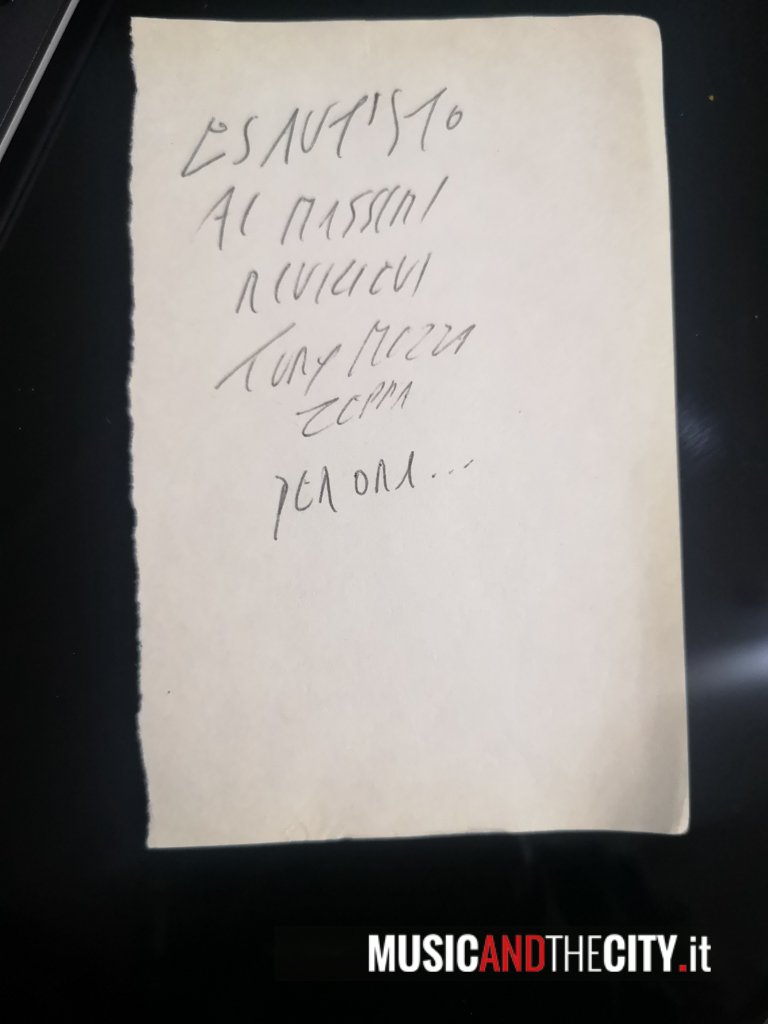 ESAUTISTO
AI MASSIMI
RIVILIEVI
TURY MEZZA
ZEPPA
PER ORA...
MUSICANDTHECITY.it